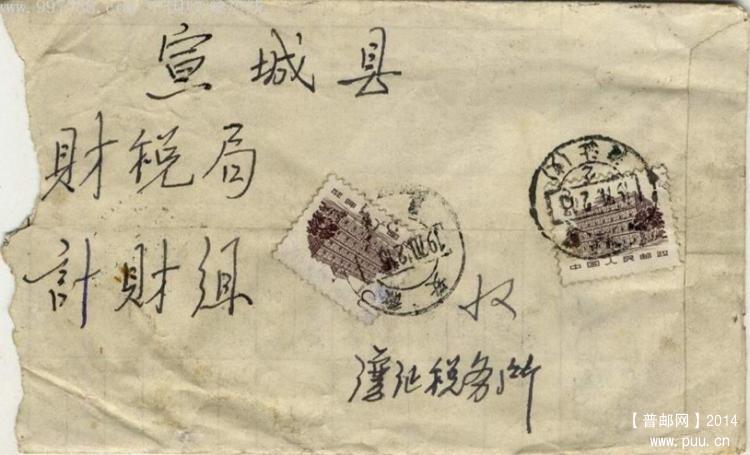 宣城县
財税局
計財组
收
湾沚税务所
中国人民邮政
【普邮网】2014
www.puu.cn